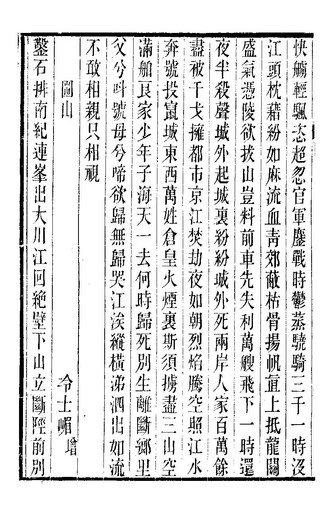 快艣輕颿恣超忽官軍鏖戰時鬱蒸驍騎三千一時沒
江頭枕藉紛如麻流血青郊蔽枯骨揚帆直上抵龍關
盛氣憑陵欲拔山豈料前車先失利萬艘飛下一時還
夜半殺聲城外起城裏紛紛城外死兩岸人家百萬餘
盡被干戈擁都市京江焚劫夜如朝烈焰騰空照江水
奔號投竄城東西萬姓倉皇火煙裏斯須擄盡三山空
滿船良家少年子海天一去何時歸死別生離斷鄉里
父兮呌號母兮啼欲歸無歸哭江涘縱橫涕泗出如流
不敢相親只相視
圌山
冷士嵋
鑿石排南紀連峯出大川江回絕壁下山立斷陘前別